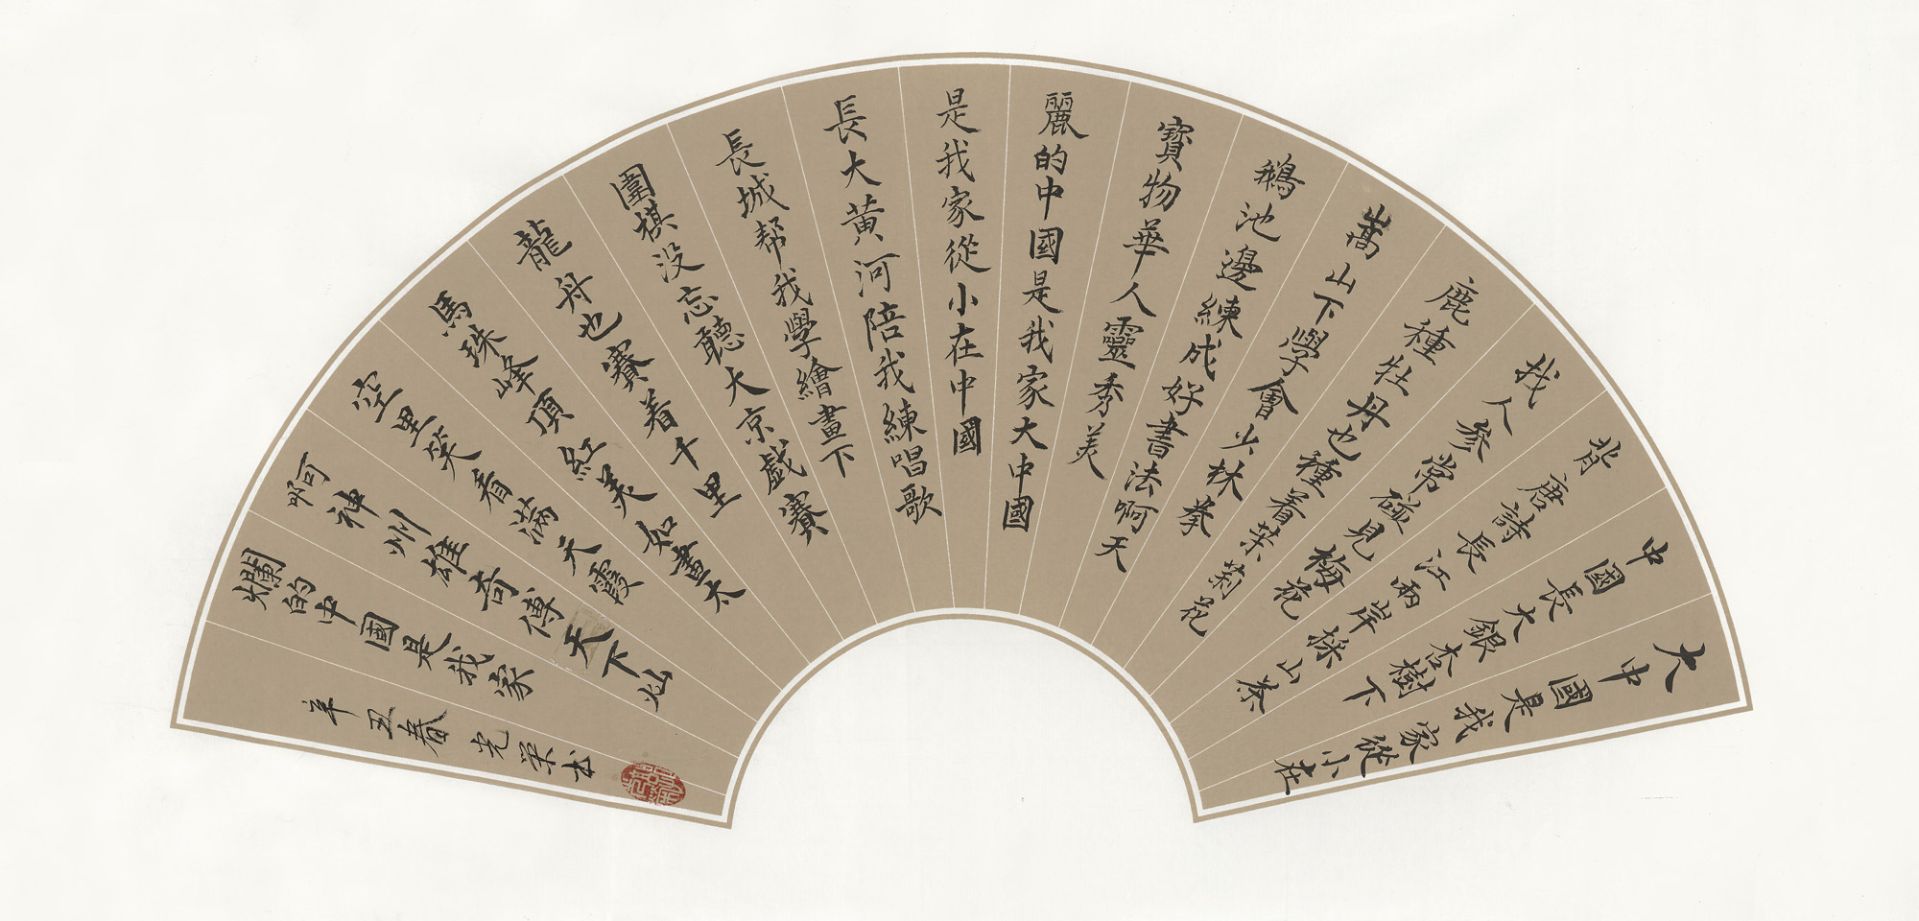 大中國是我家從小在
中國長大銀杏樹下
背唐詩長江兩岸採山茶
找人參常碰見梅花
鹿種牡丹也種着茶菊花
嵩山下學會少林拳
鵝池邊練成好書法啊天
寶物華人靈秀美
麗的中國是我家大中國
是我家從小在中國
長大黃河陪我練唱歌
長城帮我學繪畫下
圍棋没忘聽大京戯賽
龍舟也賽着千里
馬珠峰頂紅美如畫太
空里笑看滿天霞
啊神州雄奇傅天下灿
爛的中國是我家
辛丑春光榮书